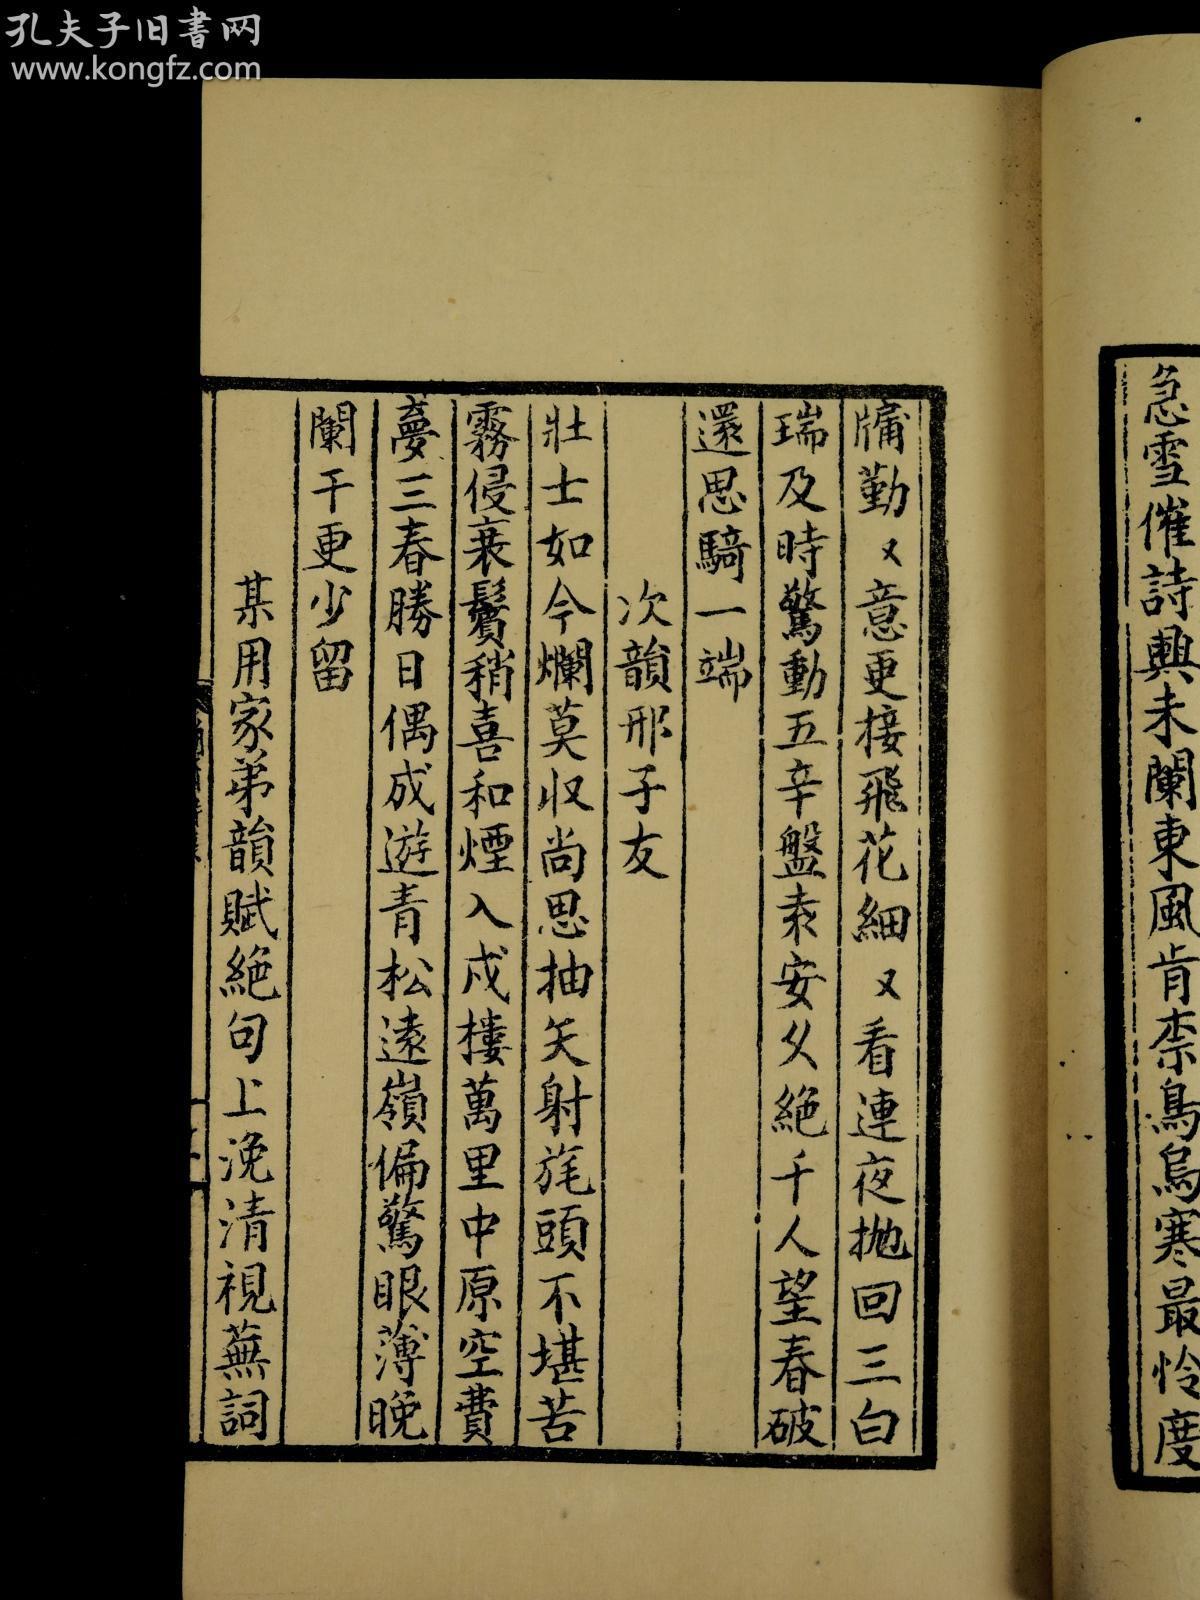 孔夫子旧书网
www.kongfz.com
急雪催詩興未闌東風肯柰鳥烏寒最怜度
牖勤〻意更接飛花細〻看連夜抛回三白
瑞及時驚動五辛盤袁安久絕千人望春破
還思騎一端
次韻邢子友
壯士如今爛莫収尚思抽矢射旄頭不堪苦
霧侵衰鬢稍喜和煙入戍樓萬里中原空費
夢三春勝日偶成遊青松遠嶺偏驚眼薄晚
闌干更少留
某用家弟韻賦絕句上浼清視蕪詞